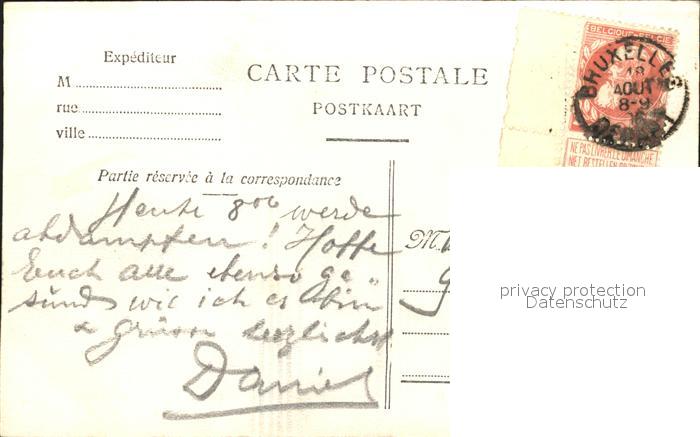 Expéditeur
M
rue
ville
CARTE POSTALE
POSTKAART
BELGIQUE·BELGIË
BRUXELLES
18
AOUT
8-9
DEPART
NE PAS LIVRER LE DIMANCHE
NIET BESTELLEN OP
Partie réservée à la correspondance
Heute 8 werde
abdampfen! Hoffe
Euch alle ebenso ge-
sund wie ich es bin
& grüsse herzlichst
Daniel
M
privacy protection
Datenschutz